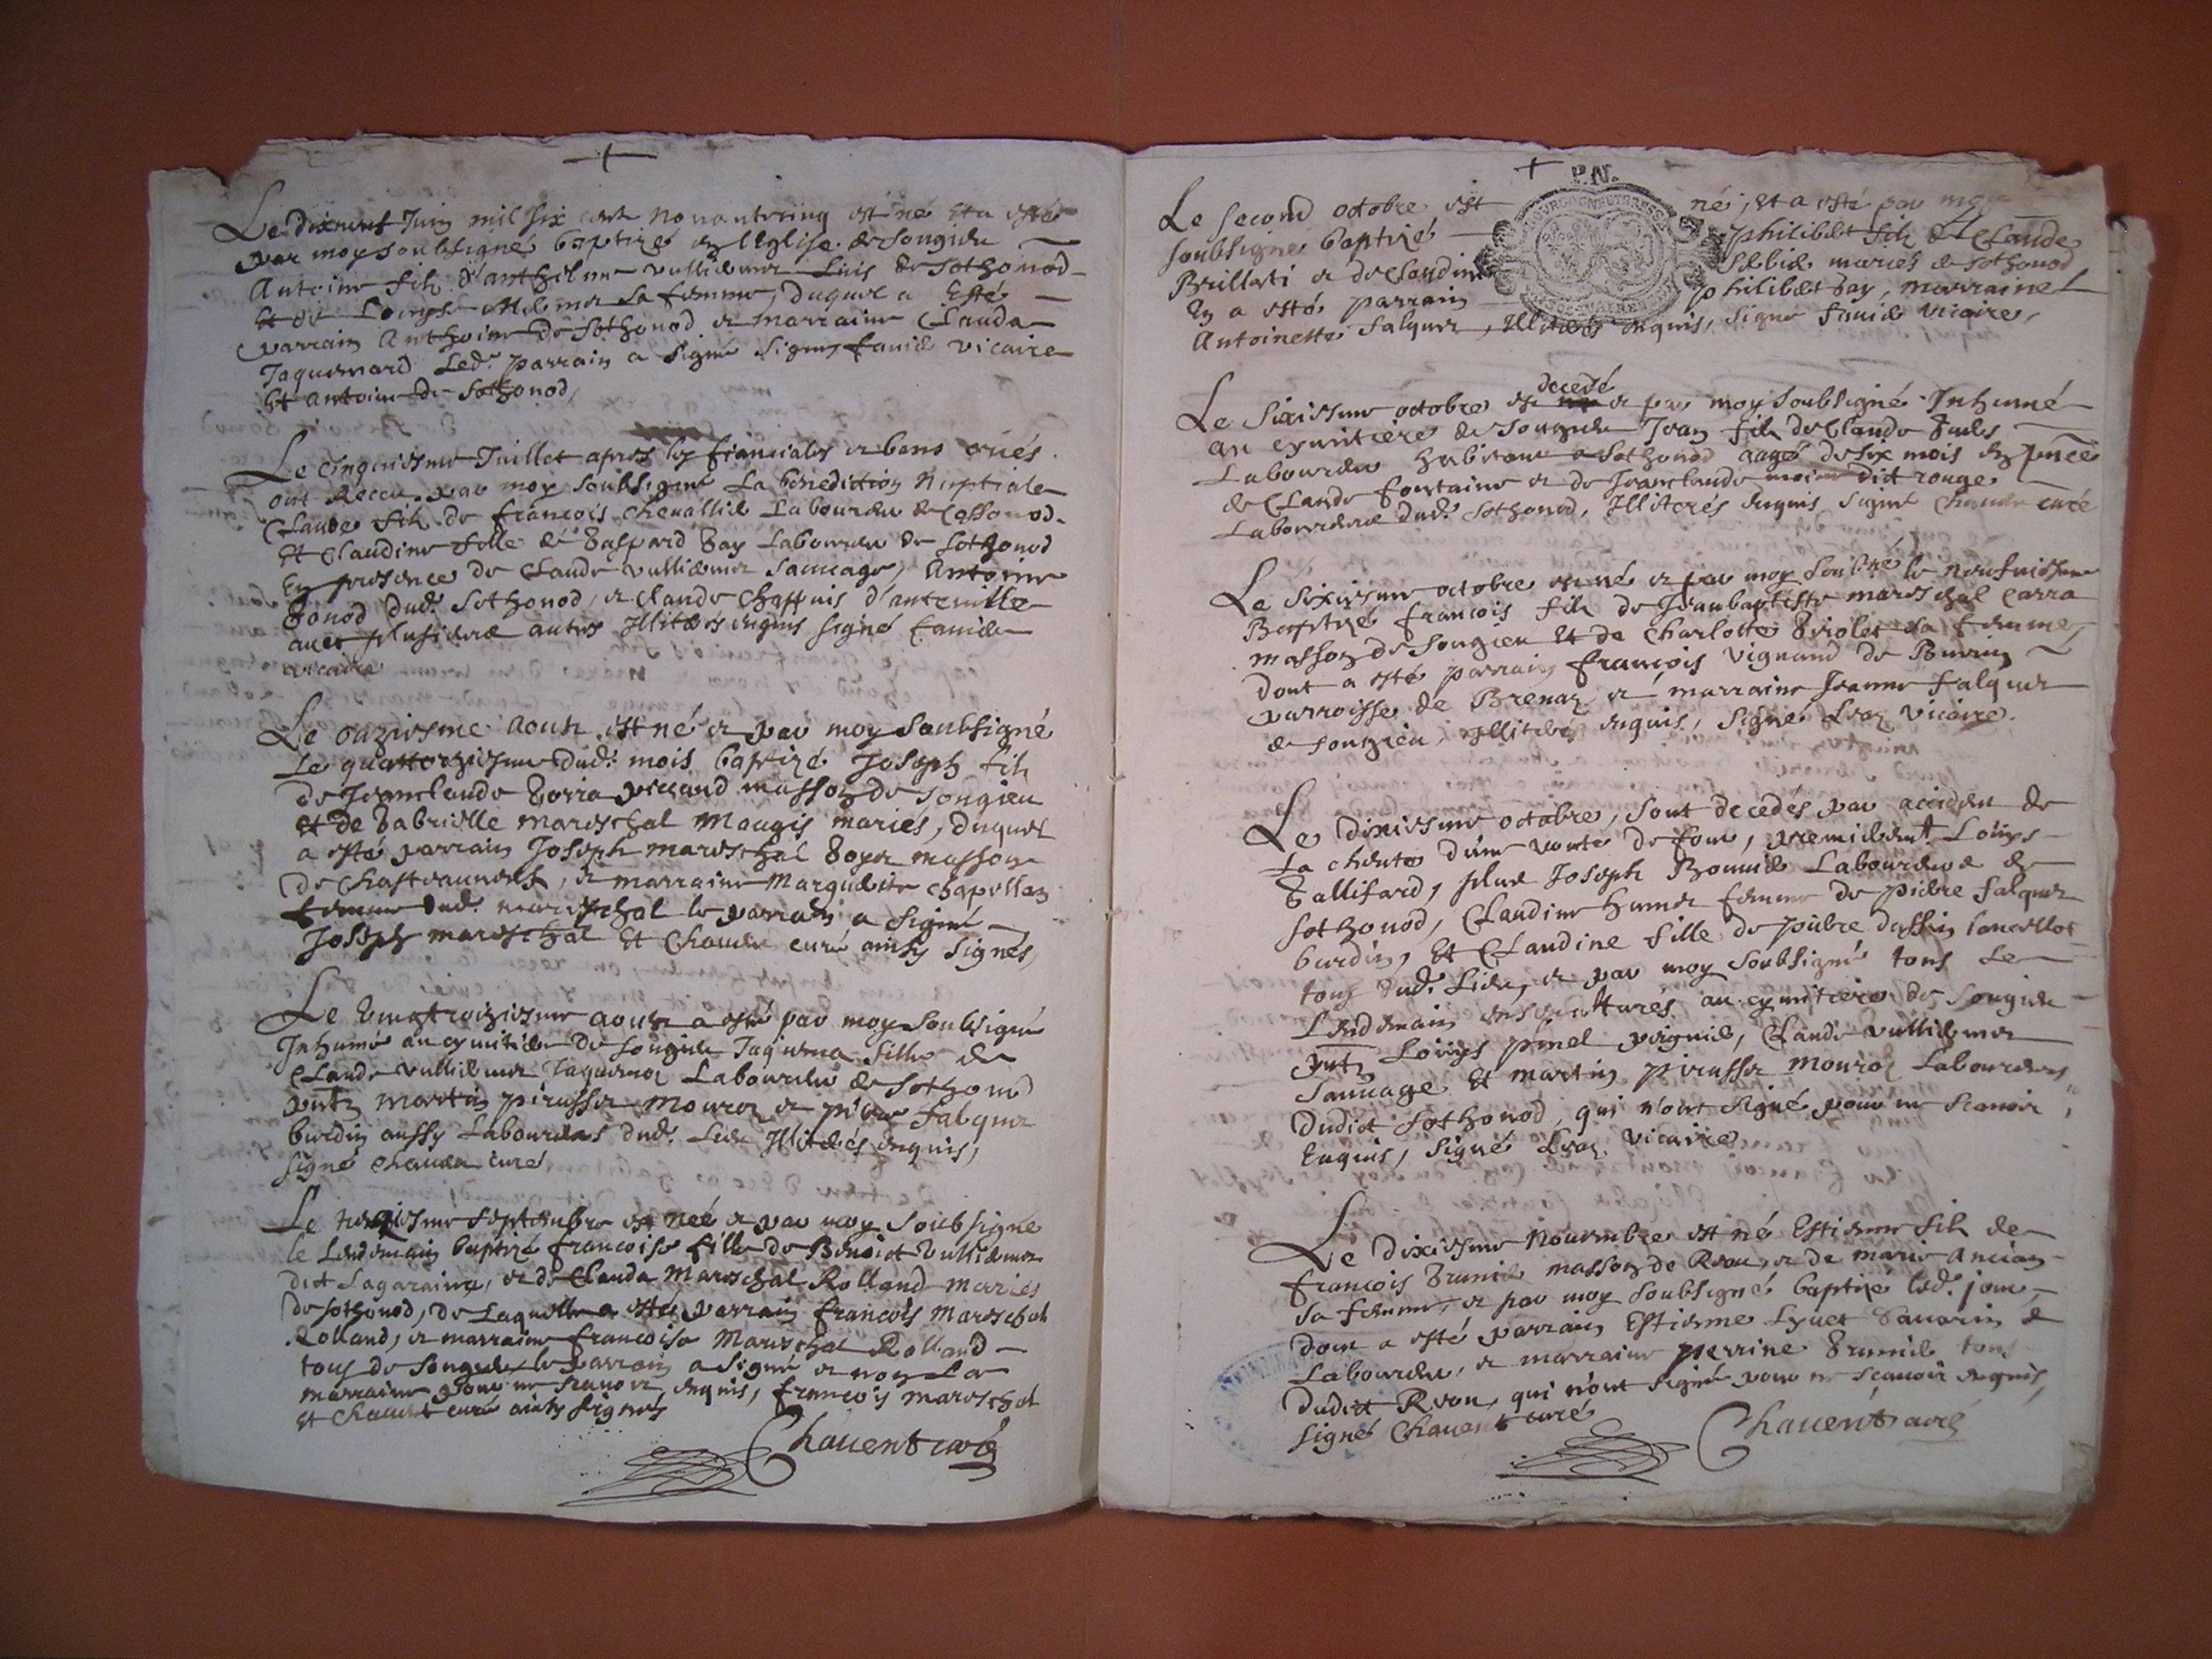 Le dixneuf Juin mil six cent nonantecinq est né et a esté
par moy soubsigné baptizé en l'Eglise de Songieu
Antoine fils d'anthelme vulliemer de Sothonod
et de sa femme, duquel a esté
parrain Anthoine de Sothonod et marraine Clauda
Jaquemard Led. parrain a signé Signes favier vicaire
Et antoine de Sothonod,
Le cinquiesme Juillet apres les fiancialles et bans criés
ont Receu par moy soubsigné La benediction Nuptiale
Claude fils de françois chevallier Laboureur de
Et Claudine fille de Gaspard Gay Laboureur de Sothonod
En presence de Claude vulliemer Sauuage, Antoine
Gonod dud. Sothonod, et Claude Chappuis d'
auec plusieurs autres Illiterés enquis signé fauier
vicaire
Le onziesme aoust est né et par moy soubsigné
Le quattorziesme dud. mois baptizé Joseph fils
de Jeanclaude masson de Songieu
et de Gabrielle mareschal Maugis mariés, duquel
a esté parrain Joseph mareschal Goyet masson
de Chasteauneuf, et marraine Marguerite Chapellaz
femme dud. mareschal le parrain a signé
Joseph mareschal Et Chauent curé ainsy signés,
Le vingtroiziesme aoust a esté par moy soubsigné
Inhumé au cymitiere de Songieu Jaquema fille de
Claude vulliemer Jaquemoz Laboureur de Sothonod
pntz martin pirasset mouroz et pierre falquet
burdin aussy Laboureurs dud. Lieu Illiterés enquis,
signé chauent curé
Le treiziesme Septembre est néé et par moy soubsigné
le Lendemain baptizé francoise fille de Benoict vulliemer
dit Lagaraine, et de Clauda Mareschal Rolland mariés
de Sothonod, de Laquelle a esté parrain francois Mareschal
Rolland, et marraine francoise Mareschal Rolland
tous de Songieu le parrain a signé et non La
marraine pour ne scauoir enquis, francois mareschal
et Chauent curé ainsy signés
Chauent curé
P.N.
Le second octobre est né, et a esté par moy
soubsigné baptizé philibert fils de Claude
Brillati et de Claudine mariés de Sothonod
En a esté parrain philibert Gay, marraine
Antoinette falquet, Illiterés enquis, signé fauier vicaire,
Le sixiesme octobre est decedé et par moy soubsigné Inhumé
au cymitiere de Songieu Jean fils de Claude
Laboureur habitant a Sothonod aagé de six mois En pnce
de Claude fontaine et de Jeanclaude moine dit rouge
Laboureurs dud. Sothonod, Illiterés enquis signé Chauent curé
Le sixiesme octobre est né et par moy soubné le neufuiesme
Baptizé francois fils de Jeanbaptiste mareschal carra
masson de Songieu Et de Charlotte Griolet sa femme,
dont a esté parrain francois vignand de
parroisse de Brenaz et marraine Jeanne falquet
de Songieu, Illiterés enquis, signé Leaz vicaire.
Le dixiesme octobre, sont decedés par accident de
La cheute d'une voute de four, premierement Loüys
Gallifard, plus Joseph Bonnier Laboureurs de
Sothonod, Claudine humet femme de pierre falquet
burdin, Et Claudine fille de pierre dessin lancellot
tous dud. Lieu, et par moy soubsigné tous le
Lendemain ensepulturés au cymitiere de Songieu
pntz Loüys pinel Claude vulliemer
Sauuage Et martin pirasset mouroz Laboureurs
Dudict Sothonod, qui n'ont signé pour ne scauoir
Enquis, signé Leaz vicaire
Le dixiesme nouembre est né Estienne fils de
francois Brunier masson de Reou, et de marie ancian
sa femme, et par moy soubsigné baptizé led. jour,
dont a esté parrain Estienne Lyuet Sauarin
Laboureur, et marraine perrine Brunier tous
Dudict Reou, qui n'ont signé pour ne scauoir enquis,
signé Chauent curé
Chauent curé